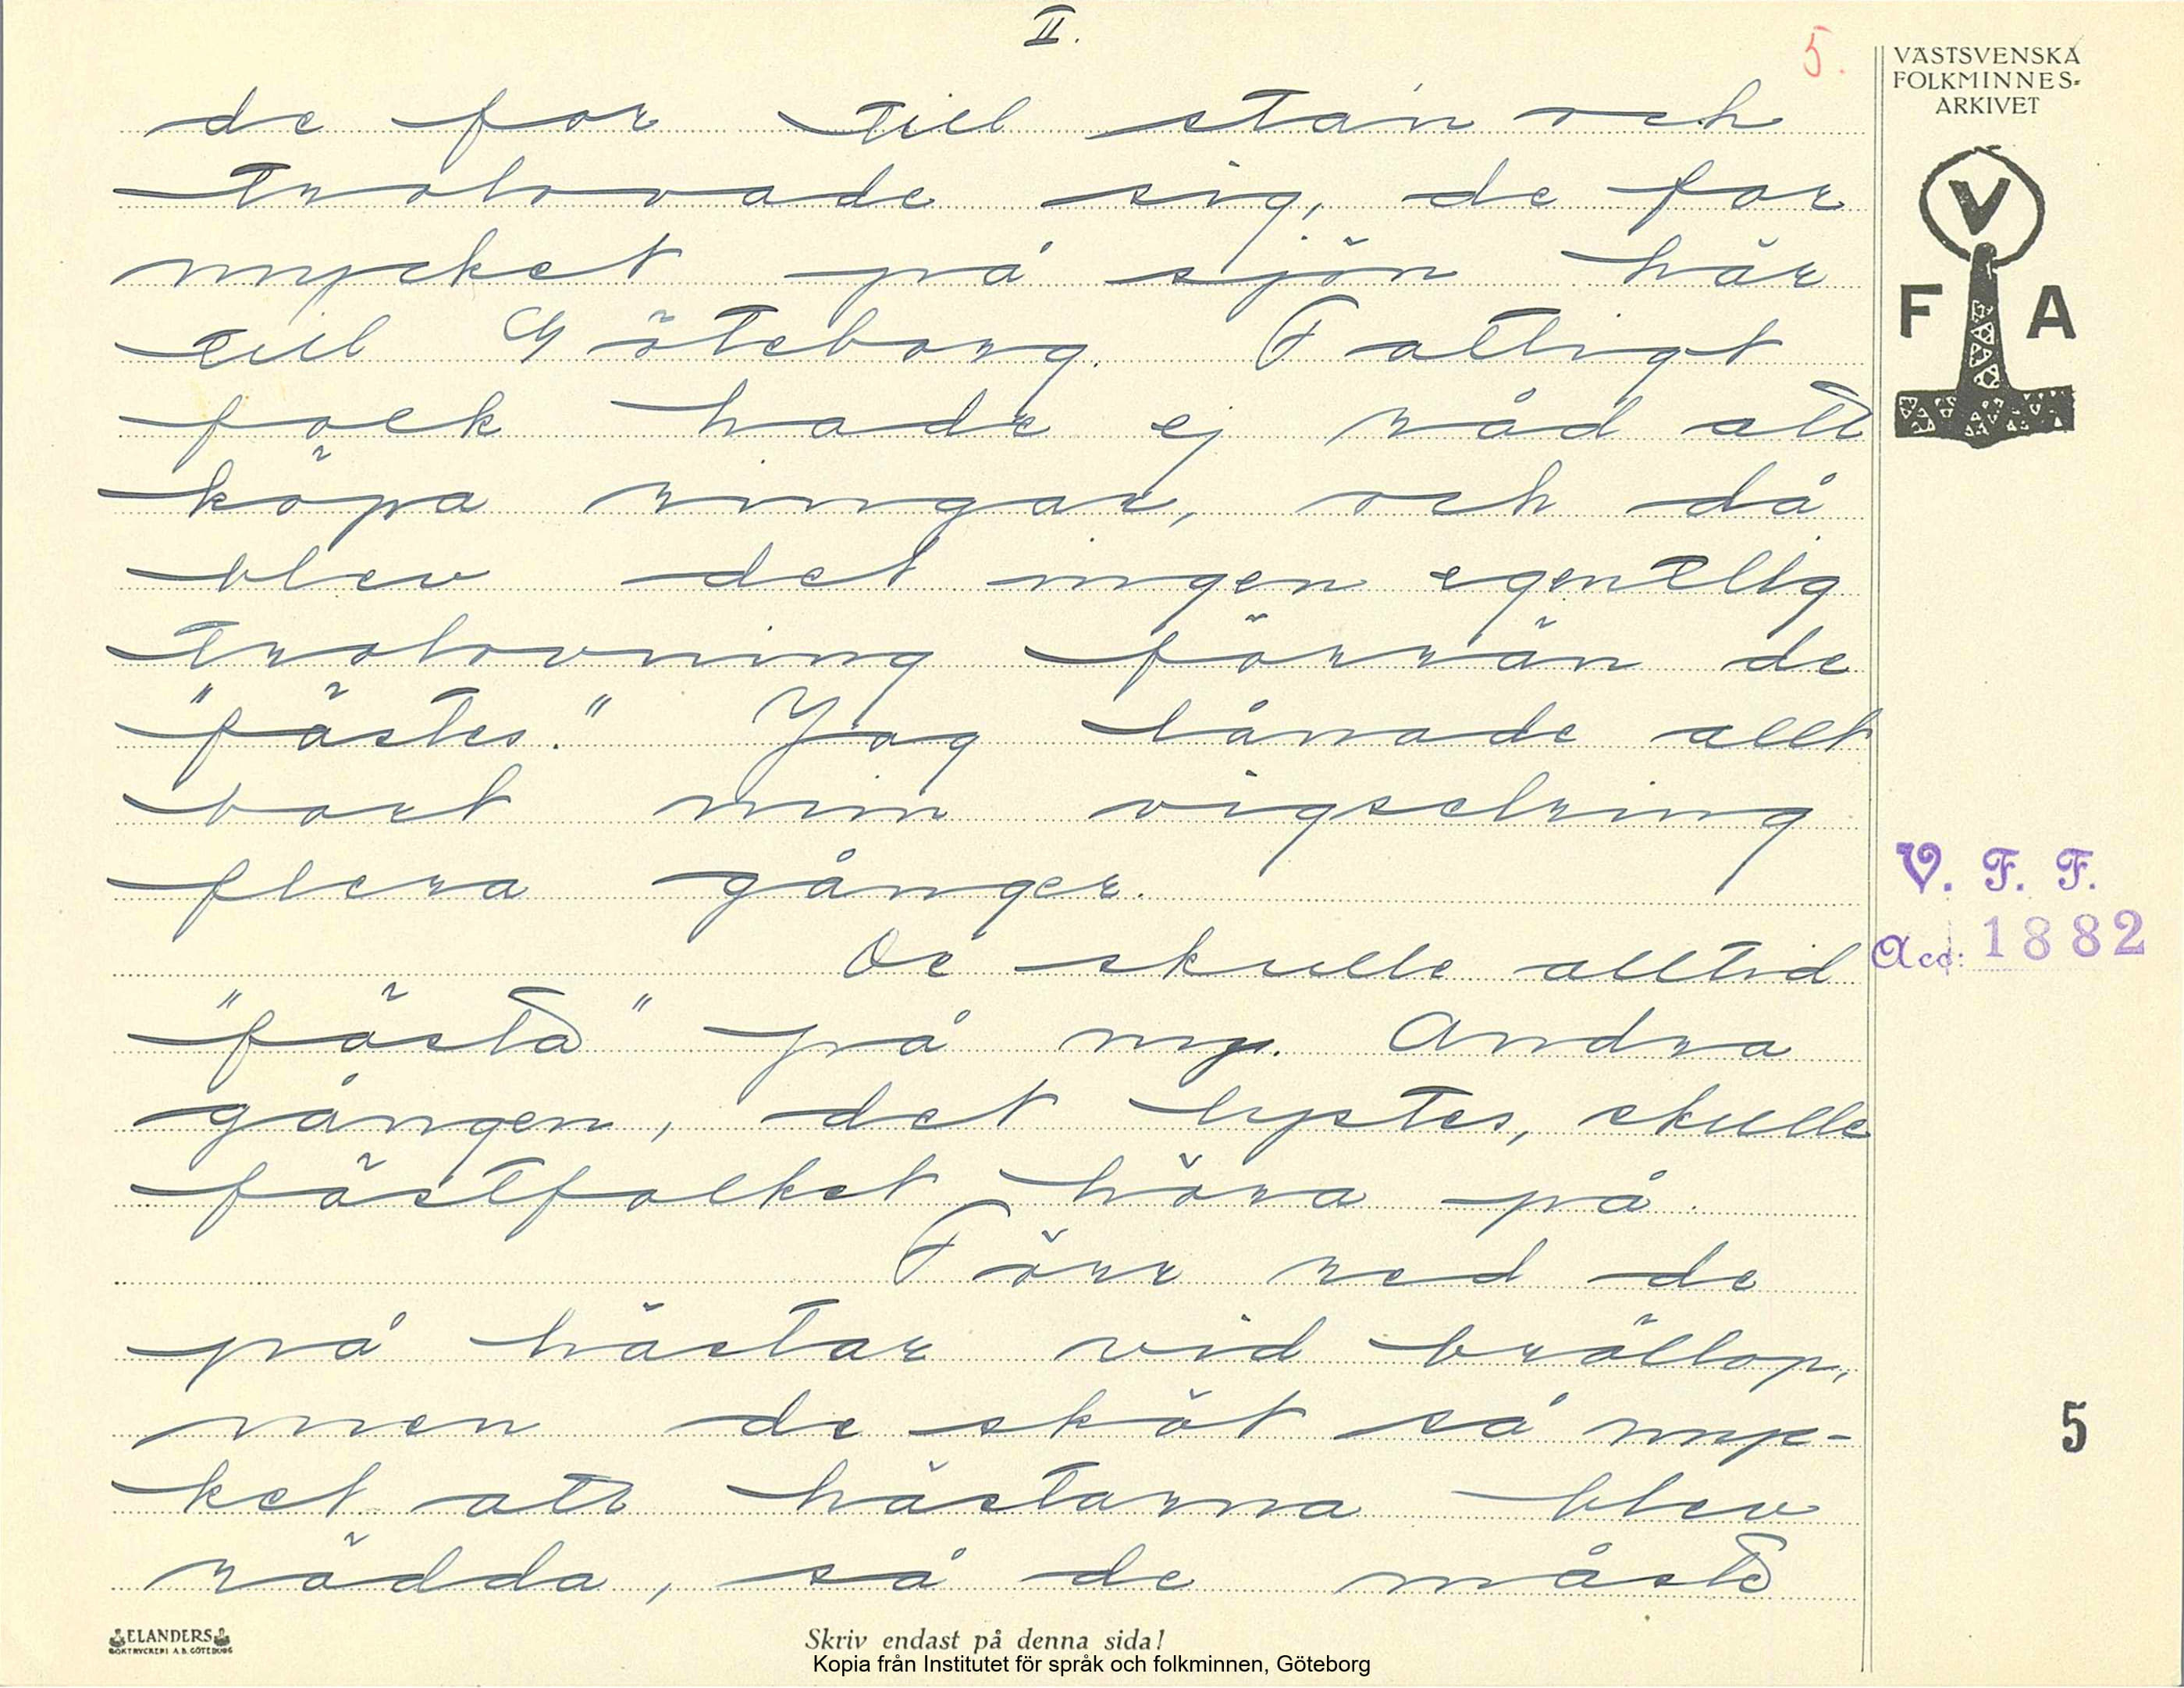 II.
5.
VÄSTSVENSKA
FOLKMINNES-
ARKIVET
V
F A
de for till stan och
trolovade sig, de for
mycket på sjön här
till Göteborg. Fattigt
folk hade ej råd att
köpa ringar, och då
blev det ingen egentlig
trolovning förrän de
"fästes." Jag lånade allt
bort min vigselring
flera gånger.
V. F. F.
De skulle alltid
Acc: 1882
"fästa" på ny. Andra
gången, det lystes, skulle
fästfolket höra på.
Förr red de
på hästar vid bröllop,
men de sköt så myc-
5
ket att hästarna blev
rädda, så de måste
ELANDERS
BOKTRYCKERI A. B. GÖTEBORG
Skriv endast på denna sida!
Kopia från Institutet för språk och folkminnen, Göteborg